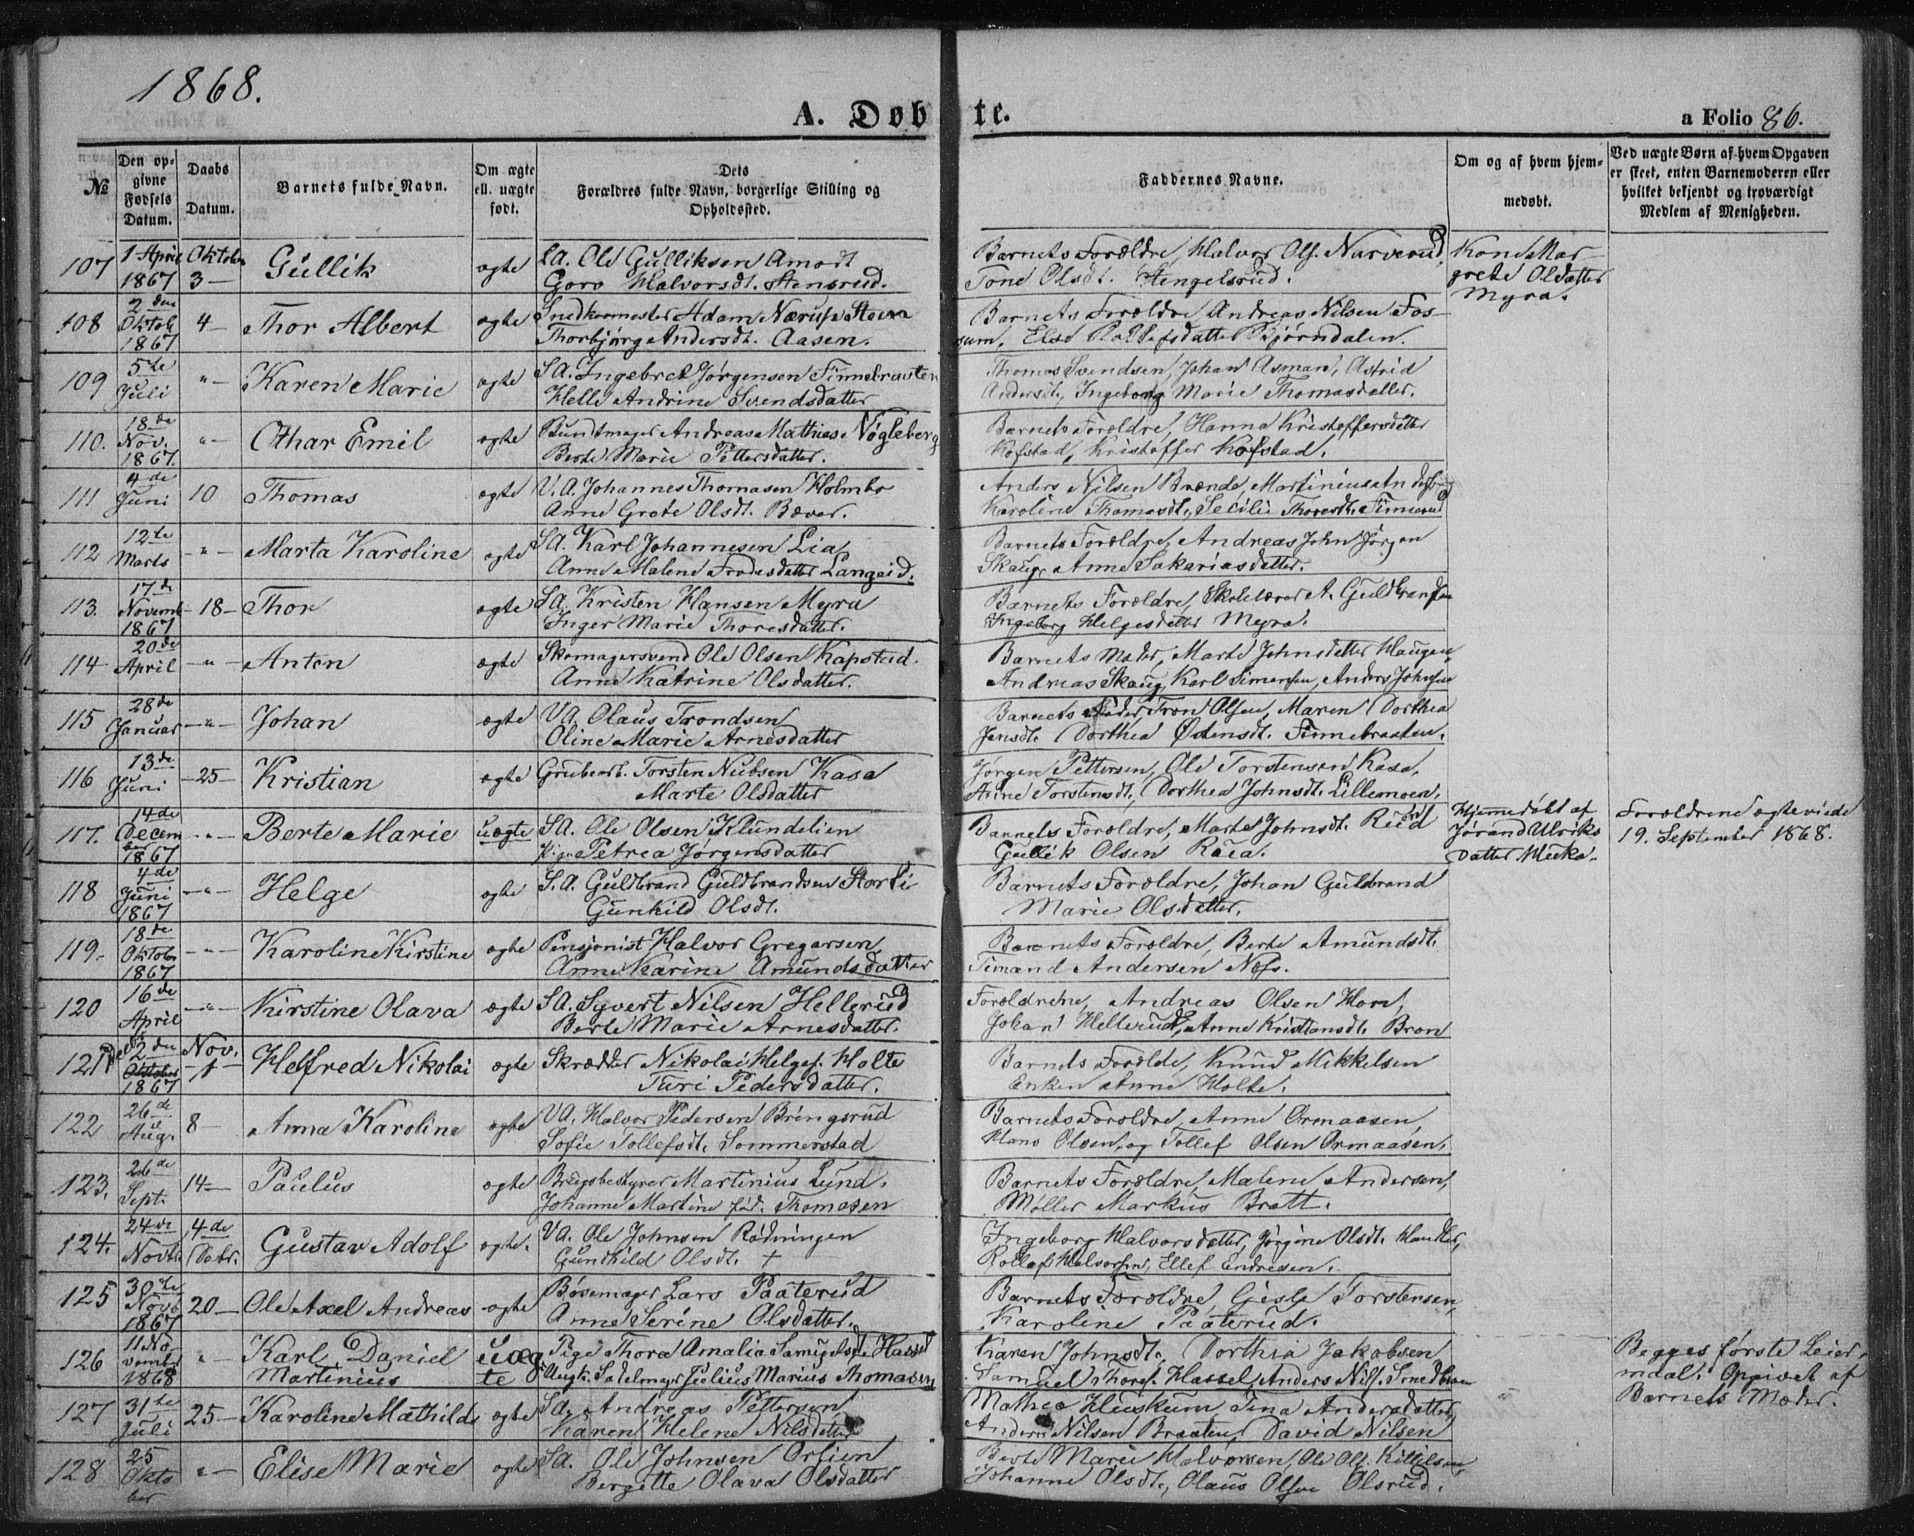 1868.
A. Døbte.
a Folio 86.
No
Den opgivne Fødsels Datum.
Daabs Datum.
Barnets fulde Navn.
Om ægte ell. uægte født.
Dets Forældres fulde Navn, borgerlige Stilling og Opholdssted.
Faddernes Navne.
Om og af hvem hjemmedøbt.
Ved uægte Børn af hvem Opgaven er skeet, enten Barnemoderen eller hvilket bekjendt og troværdigt Medlem af Menigheden.
107 1 April 1867 Oktober 3 Gullik ægte SA. Ole Gulliksen Amodt
Goro Halvorsdt. Stensrud.
Barnets Forældre, Halvor Ols. Narverud,
Tone Olsdt. Hengelsrud.
Kone Margrete Olsdatter Myra.
108 2den Oktob 1867 4 Thor Albert ægte Snedkermester Adam
Thorbjørg Andersdt. Aasen.
Barnets Forældre Andreas Nilsen Fossum, Else Rollefsdatter Bjørndalen.
109 5te Juli " Karen Marie ægte SA. Ingebret Jørgensen Finnebraaten
Helle Andrine Svendsdatter
Thomas Svendsen, Johan Asman, Astrid
Andersdt., Ingeborg Marie Thomasdatter.
110. 18de Nov. 1867. " Othar Emil ægte Bundtmager Andreas Mathias Nøgleberg
Berte Marie Pettersdatter.
Barnets Forældre, Hanna Kristoffersdatter
Kofstad, Kristoffer Kofstad.
111 4de Juni 10 Thomas ægte V.A. Johannes Thomasen Holmbo
Anne Grete Olsdt. Bæver.
Anders Nilsen Brænde, Martinius
Karoline Thomasdt., Secilie Thoresdt. Finnerud
112 12te Marts " Marta Karoline ægte SA. Karl Johannesen Lia
Anne Malene Frodesdatter Langeid.
Barnets Forældre, Andreas John Jørgen
Skaug, Anne Sakariasdatter.
113. 17de Novemb 1867 18 Thor ægte SA. Kristen Hansen Myra
Inger Marie Thoresdatter.
Barnets Forældre, Skolelærer A. Guldbransen
Ingeborg Helgesdatter Myra.
114 20de April " Anton ægte Skomagersvend Ole Olsen Kapstad.
Anne Katrine Olsdatter.
Barnets Moder, Marte Johnsdatter Haugen,
Andreas Skaug, Karl Simensen, Anders Johnsen
115 28de Januar " Johan ægte VA. Olaus Trondsen
Oline Marie Arnesdatter
Barnets Fader, Tron Olsen, Maren Dorthea
Jensdt. Dorthea Østensdt. Finnebraaten.
116 13de Juni 25 Kristian ægte Grubearb. Torsten Nubsen Kasa
Marte Olsdatter
Jørgen Pettersen, Ole Torstensen Kasa,
Anne Torstensdt., Dorthea Johnsdt. Lillemoen.
117. 14de December 1867 " Berte Marie uægte SA. Ole Olsen Klundelien
Pige Petrea Jørgensdatter
Barnets Forældre, Marte Johnsdt. Rued
Gullik Olsen Rua.
Hjemmedøbt af Jørand Ulriksdatter Mecka.
Forældrene ægteviede 19. September 1868.
118 4de Juni 1867 " Helge ægte S.A. Guldbrand Guldbrandsen Storli
Gunhild Olsdt.
Barnets Forældre, Johan Guldbrand
Marie Olsdatter.
119. 18de Oktober 1867 " Karoline Kirstine ægte Pensjonist Halvor Gregarsen
Anne Karine Amundsdatter
Barnets Forældre, Berte Amundsdt.
Timand Andersen Næs.
120 16de April " Kirstine Olava ægte SA. Syvert Nilsen Hellerud
Berte Marie Arnesdatter.
Forældrene, Andreas Olsen Horn,
Johan Hellerud, Anne Kristiansdt. Bron
121 2den Oktober 1867 Nov. 1 Helfred Nikolai ægte Skrædder Nikolai Helges. Holte
Turi Pedersdatter.
Barnets Forælde, Knud Mikkelsen
Enken Anne Holte.
122 26de Aug. 8 Anna Karoline ægte VA. Halvor Pedersen Bringsrud
Sofie Tollefsdt. Sommerstad
Barnets Forældre, Anne Ormaasen,
Hans Olsen, og Tollef Olsen Ormaasen.
123. 26de Sept. 14 Paulus ægte Brugsbestyrer Martinius Lund.
Johanne Martine fød. Thomasen
Barnets Forældre, Malene Andersen,
Møller Markus Bratt.
124. 24de Novbr 4de Debr. Gustav Adolf ægte. VA. Ole Johnsen Rødningen
Gunhild Olsdt. +
Ingeborg Halvorsdatter, Jørgine Olsdt.
Rollef Halvorsen, Ellef Endresen.
125 30te Novb 1867 20 Ole Axel Andreas ægte Bøsemager Lars Paaterud
Anne Serine Olsdatter.
Barnets Forældre, Gisle Torstensen,
Karoline Paaterud.
126 11 November 1868 " Karl Daniel Martinius uægte Pige Thora Amalia Hassel
Ungk. Sadelmager Julius Marius Thomasen
Karen Johnsdt. Dorthia Jakobsen
Samuel Thores. Hassel, Anders Nils.
Begges første Leiermaal. Opgivet af Barnets Moder.
127 31te Juli 25 Karoline Mathilde ægte SA. Andreas Pettersen
Karen Helene Nilsdatter
Mathea Huskum Tina Andersdatter,
Anders Nilsen Braaten, David Nilsen
128 25 Oktober " Elise Marie ægte SA. Ole Johnsen Orlien
Bergette Olava Olsdatter
Berte Marie Halvorsen, Ole Ols. Killilsen,
Johanne Olsdt., Olaus Olsen Olsrud.